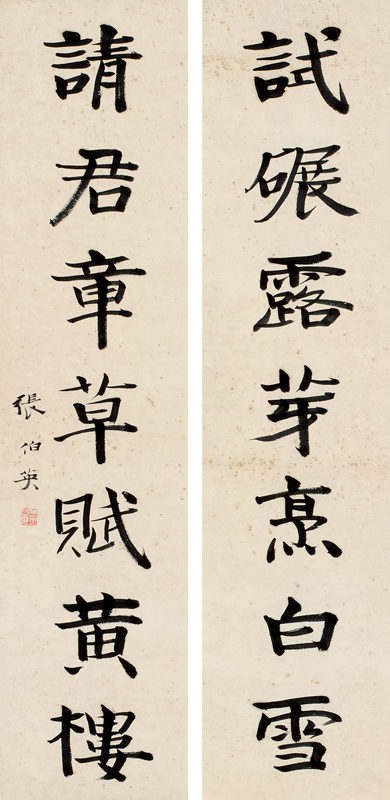 試碾露芽烹白雪
請君章草賦黃樓
張伯英